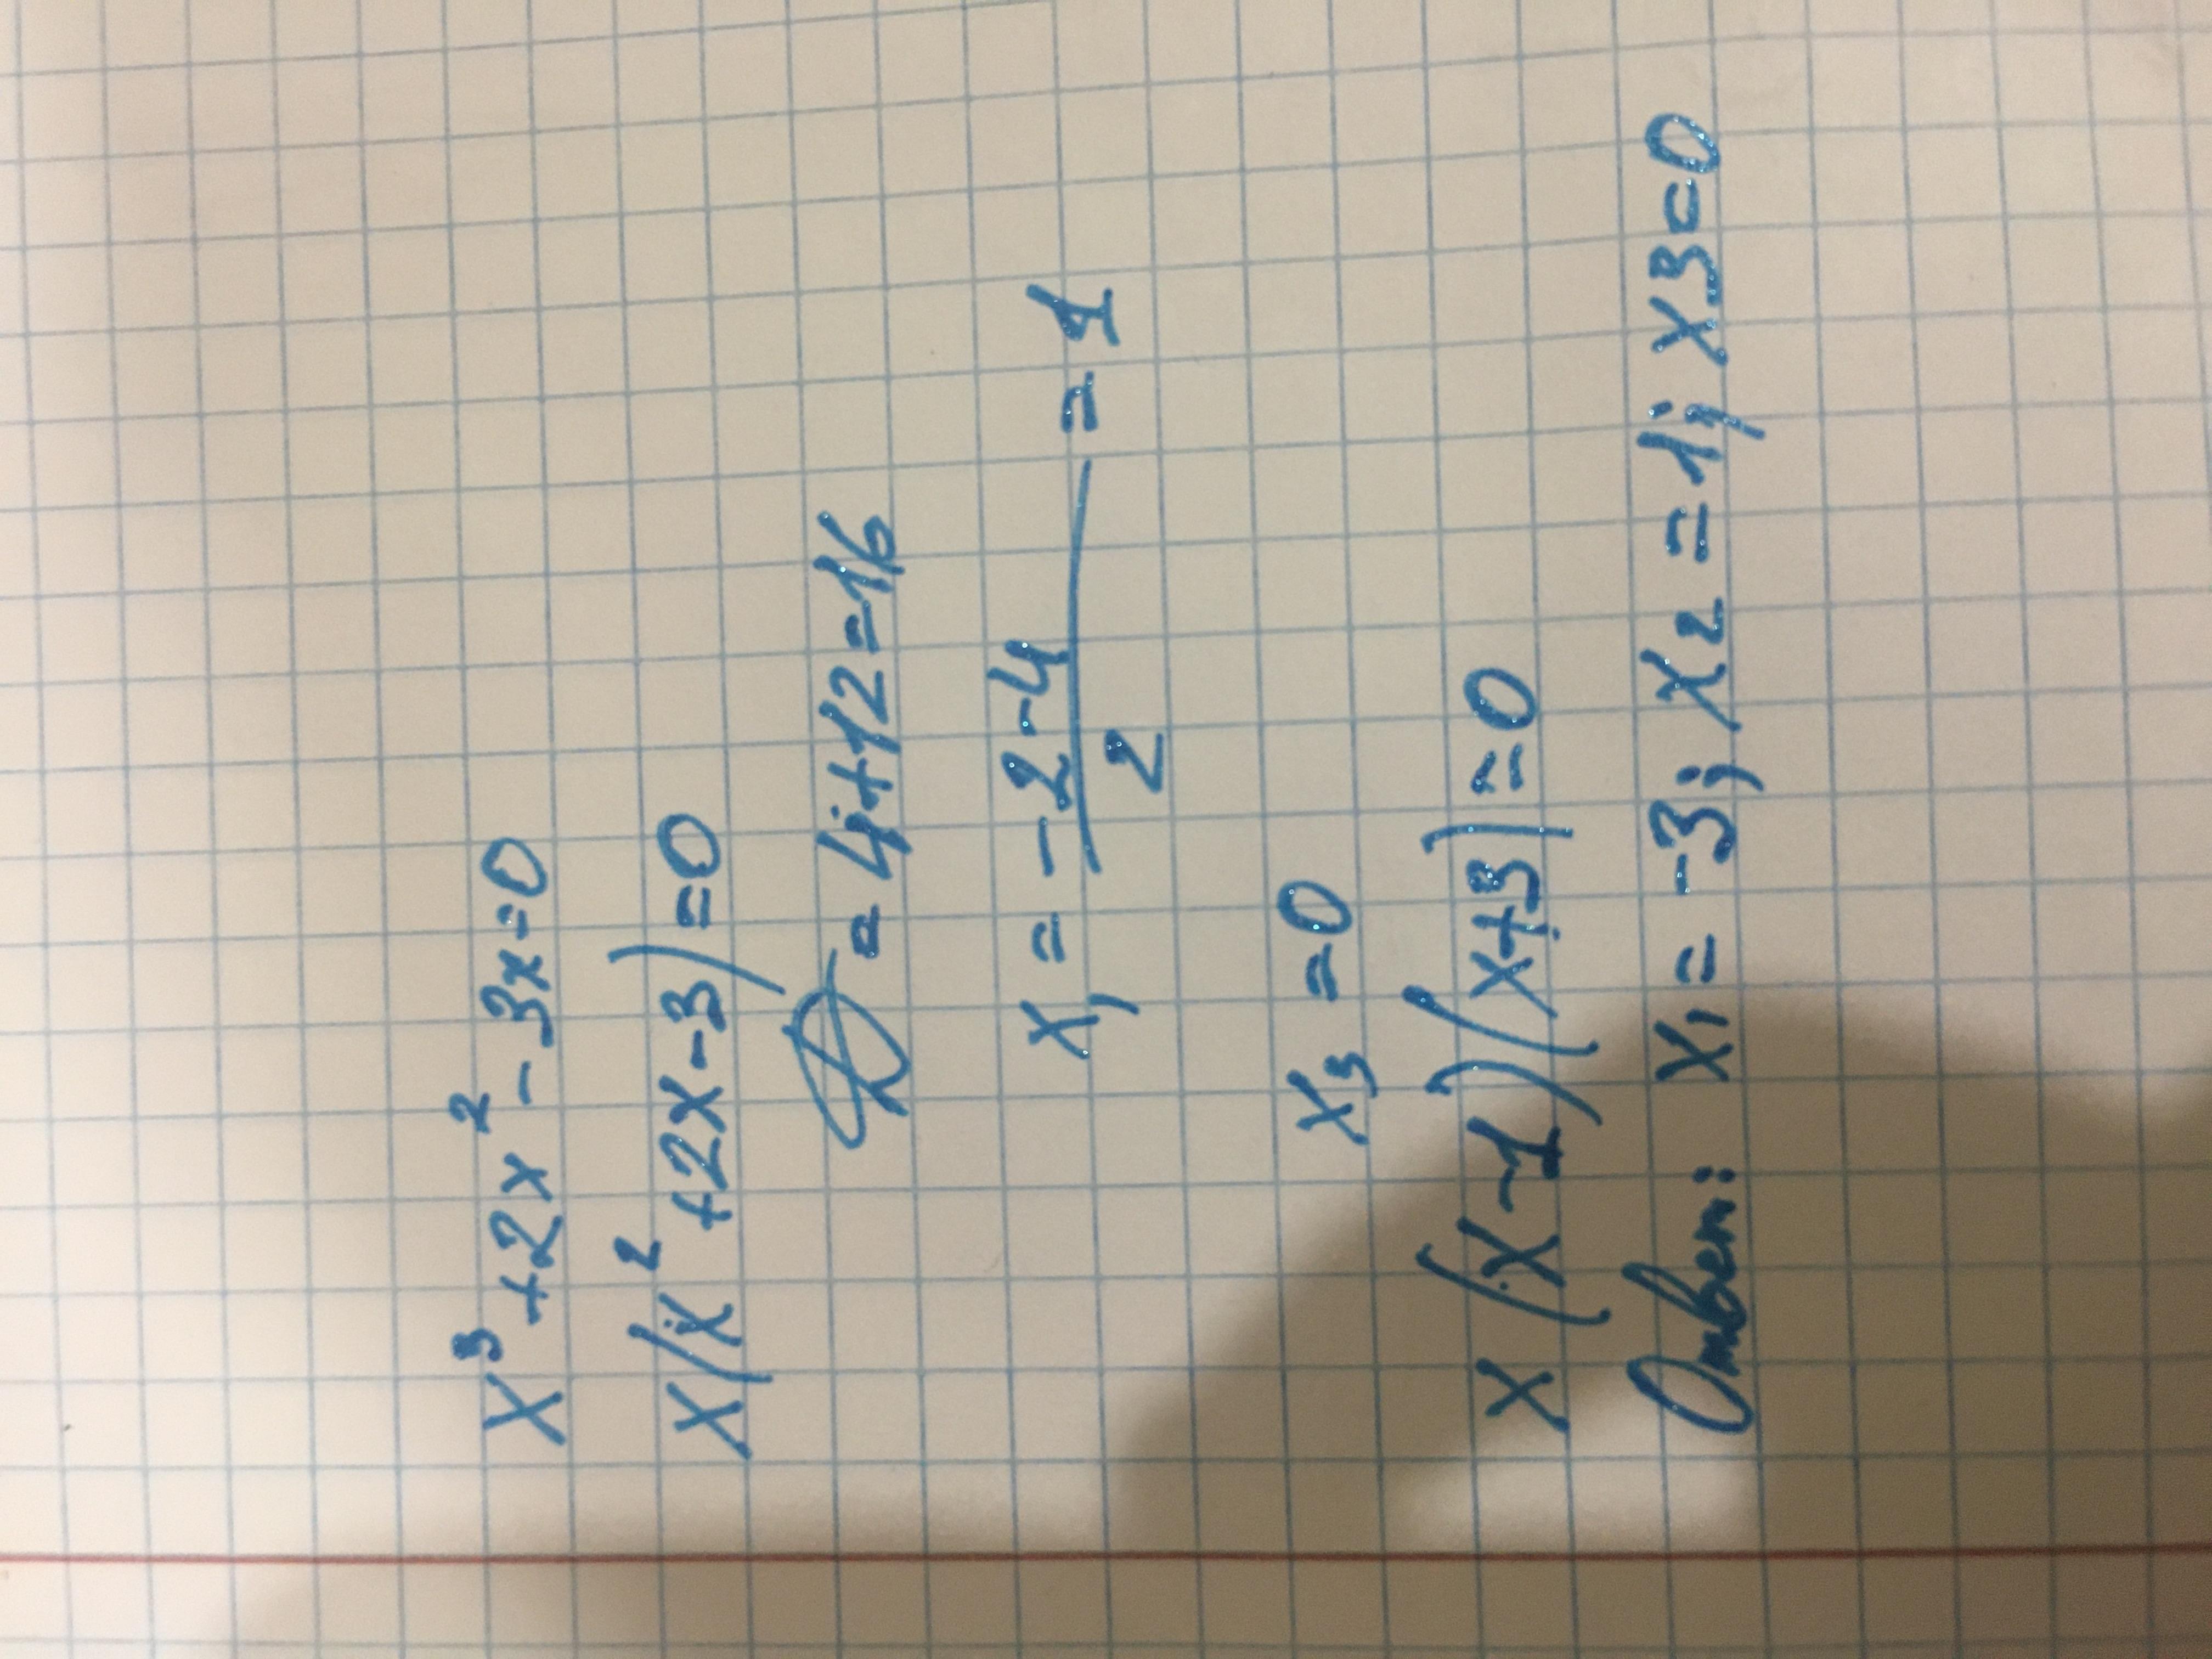 x³+2x²-3x=0
x(x²+2x-3)=0
D=4+12=16
x₁ = -2-4/2 = 1
x₃=0
x(x-1)(x+3)=0
Ответ: x₁=-3; x₂=1; x3=0